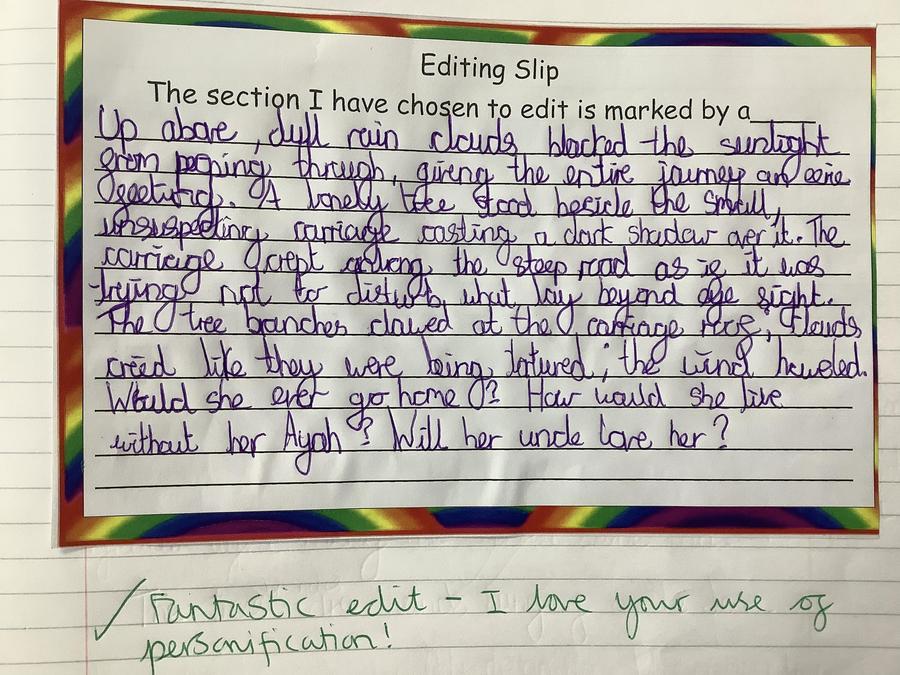 Editing Slip
The section I have chosen to edit is marked by a_____
Up above, dull rain clouds blocked the sunlight
from peeping through, giving the entire journey an eerie
feeling. A lonely tree stood beside the small,
unsuspecting carriage casting a dark shadow over it. The
carriage crept along the steep road as if it was
trying not to disturb what lay beyond eye sight.
The tree branches clawed at the carriage roof; clouds
cried like they were being tortured; the wind howeled.
Would she ever go home? How would she live
without her Ayah? Will her uncle love her?
✓ Fantastic edit - I love your use of
personification!